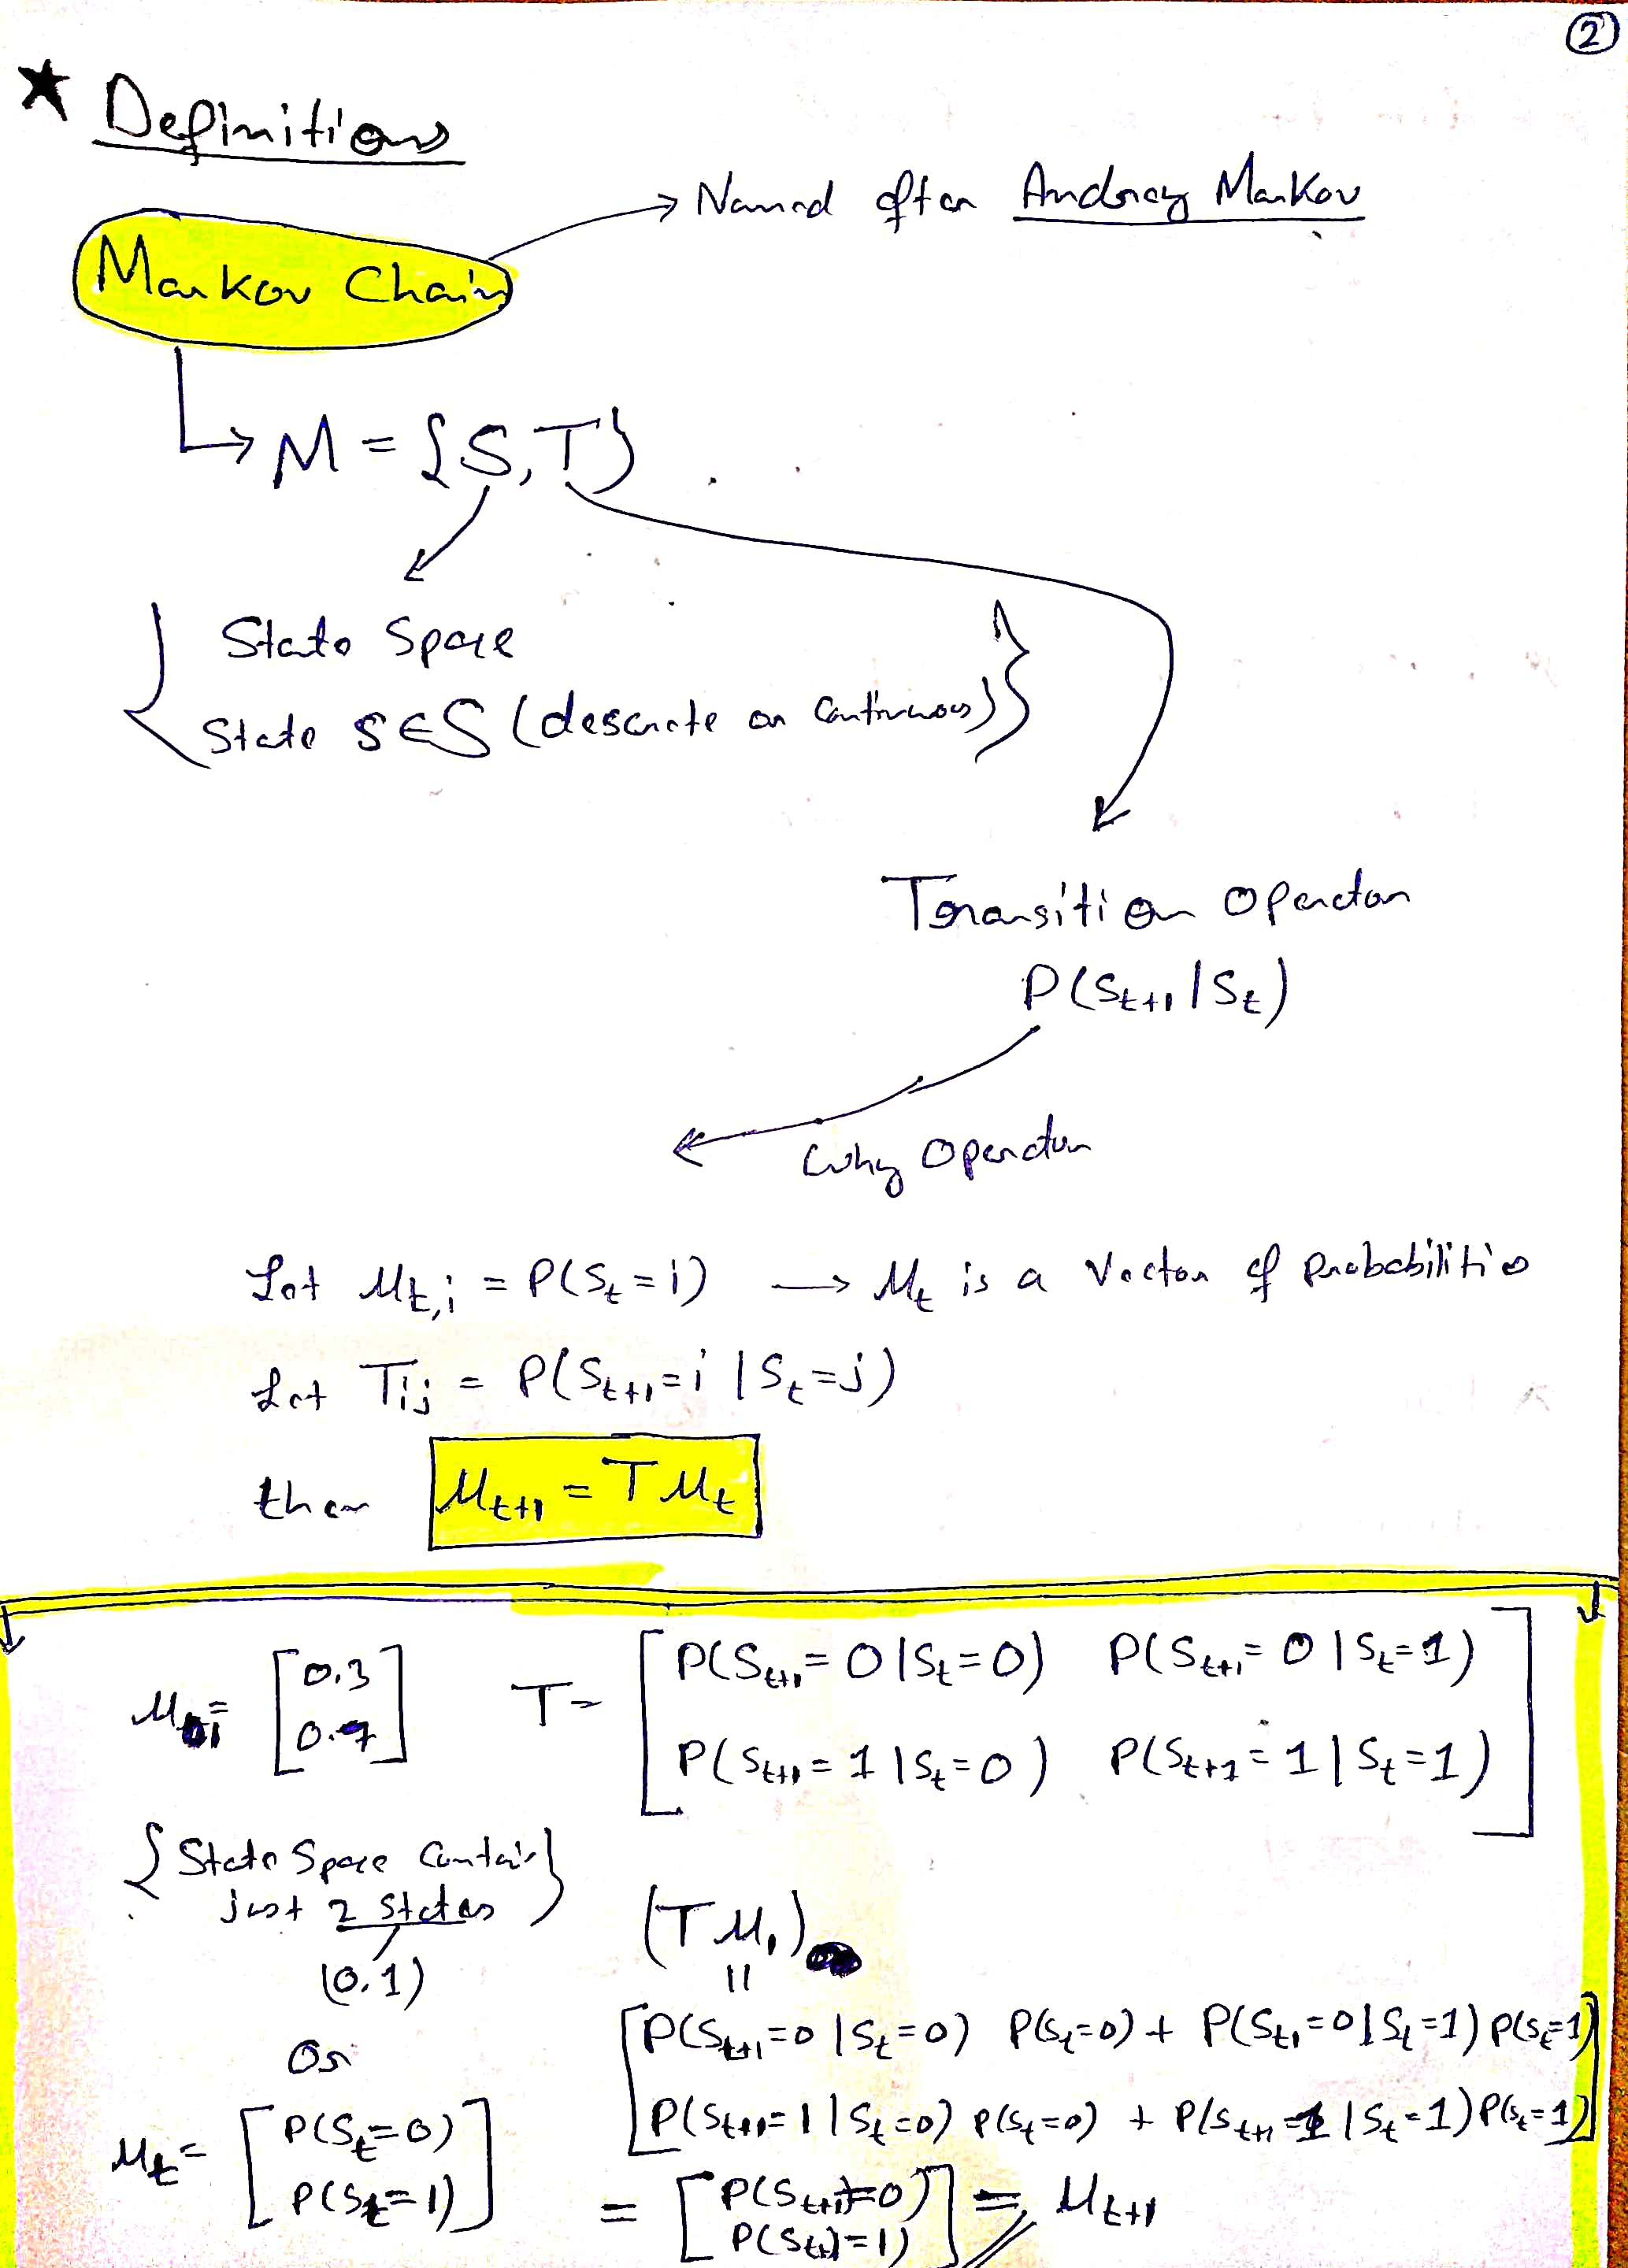 ②
★ Definitions
→ Named after Andrey Markov
Markov Chain
↳ M = {S, T}
State Space
State s ∈ S (descrete or Continuous)
Transition Operator
P(S_{t+1} | S_t)
Why Operator
Let μ_{t,i} = P(S_t = i) → μ_t is a Vector of Probabilities
Let T_{ij} = P(S_{t+1} = i | S_t = j)
then μ_{t+1} = T μ_t
= [0.3 0.7] T = [P(S_{t+1} = 0 | S_t = 0) P(S_{t+1} = 0 | S_t = 1)
P(S_{t+1} = 1 | S_t = 0) P(S_{t+1} = 1 | S_t = 1)]
{State Space Contain
just 2 States}
(0,1)
(T μ_1)
||
[P(S_{t+1} = 0 | S_t = 0) P(S_t = 0) + P(S_{t+1} = 0 | S_t = 1) P(S_t = 1)
P(S_{t+1} = 1 | S_t = 0) P(S_t = 0) + P(S_{t+1} = 1 | S_t = 1) P(S_t = 1)]
Or
μ_t = [P(S_t = 0)
P(S_t = 1)]
= [P(S_{t+1} = 0)
P(S_{t+1} = 1)] = μ_{t+1}